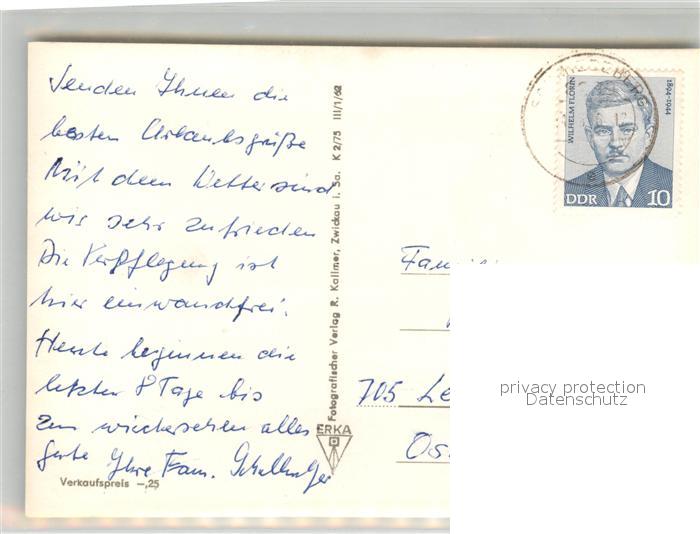 Senden Ihnen die
besten Urlaubsgrüße
Mit dem Wetter sind
wir sehr zufrieden
Die Verpflegung ist
hier einwandfrei.
Heute beginnen die
letzten 8 Tage bis
zum wiedersehen alles
gute Ihre Fam.
Verkaufspreis -,25
Fotografischer Verlag R. Kallmer, Zwickau i. Sa. K 2/75 III/1/62
ERKA
WILHELM FLORIN
1894-1944
DDR 10
705 Le
Os
privacy protection
Datenschutz